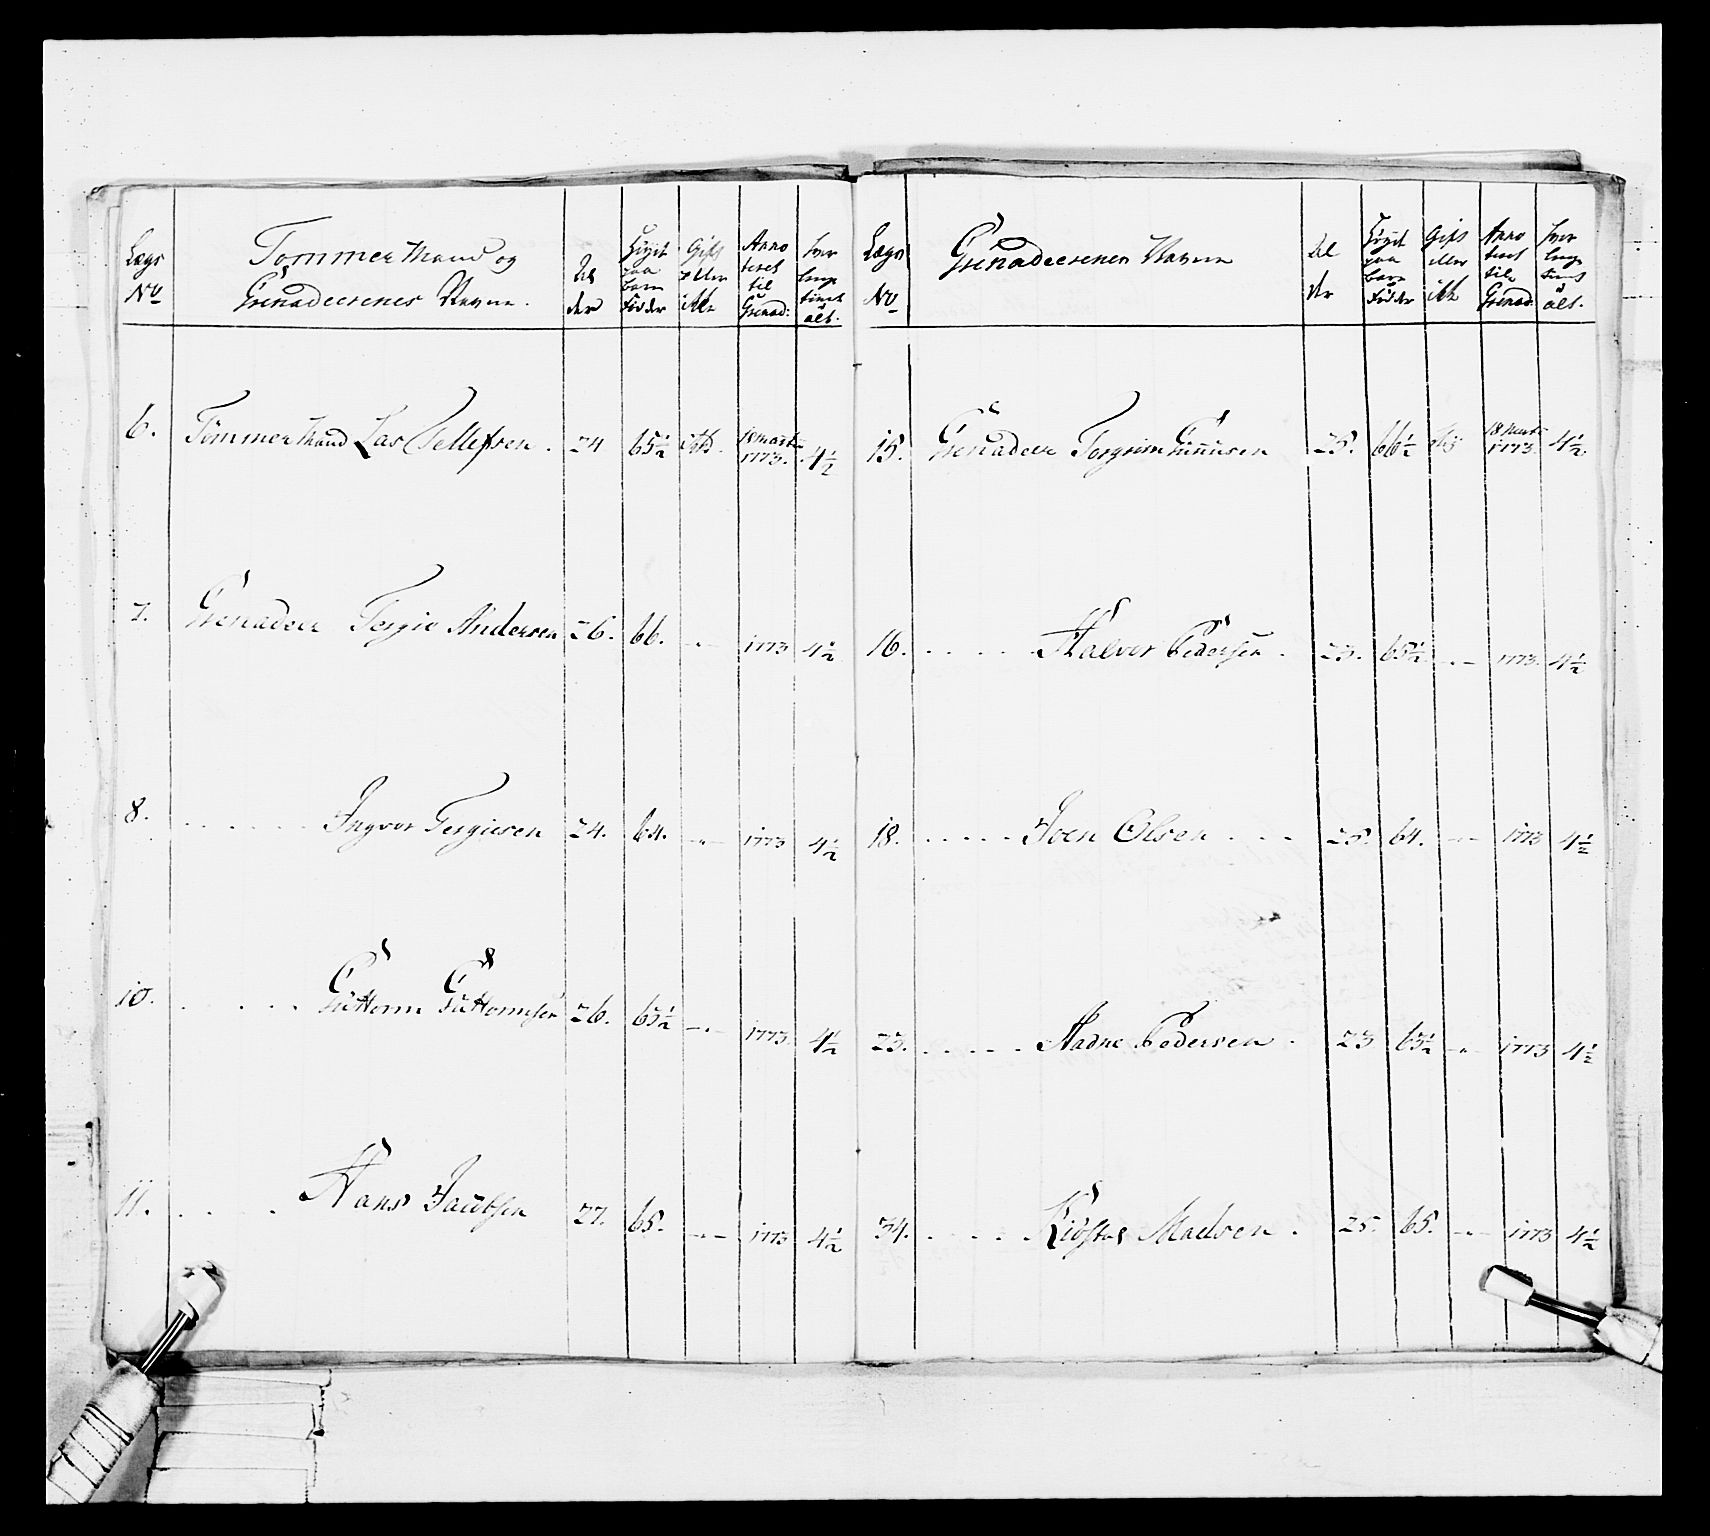 Lægs No
Tømmer Mand og Grenadeerenes Navne.
Al der
Høyde paa bare Fødder
Gift eller ikke
Anno teret til Grenad:
hvor lenge tient i alt.
6. Tømmer Mand Lar Tellefsen. 24 65½ 18 Marti 1773. 4½
7. Grenadeer Tergie Andersen 26. 66. -"- 1773 4½
8. . . . . . . Ingvor Tergiesen 24. 64. -"- 1773 4½
10. . . . . Guttorm Guttormsen 26. 65½ -"- 1773. 4½
11. . . . . Hans Jacobsen 27. 65. -"- 1773 4½
Lægs No
Grenadeerenes Navne
Al der
Høyde paa bare Fødder
Gift eller ikke
Anno teret til Grenad:
hvor lenge tient i alt.
15. Grenadeer Torgrim Gunnusen 25. 66½ 18 Marti 1773. 4½
16. . . . . . Halvor Pedersen. 23. 65½ -"- 1773. 4½
18. . . . . . Joen Olsen . . . 25. 64. -"- 1773 4½
23. . . . . . Aadne Pedersen. 23 63½ -"- 1773 4½
34. . . . . Madsen. 25. 65. -"- 1773 4½